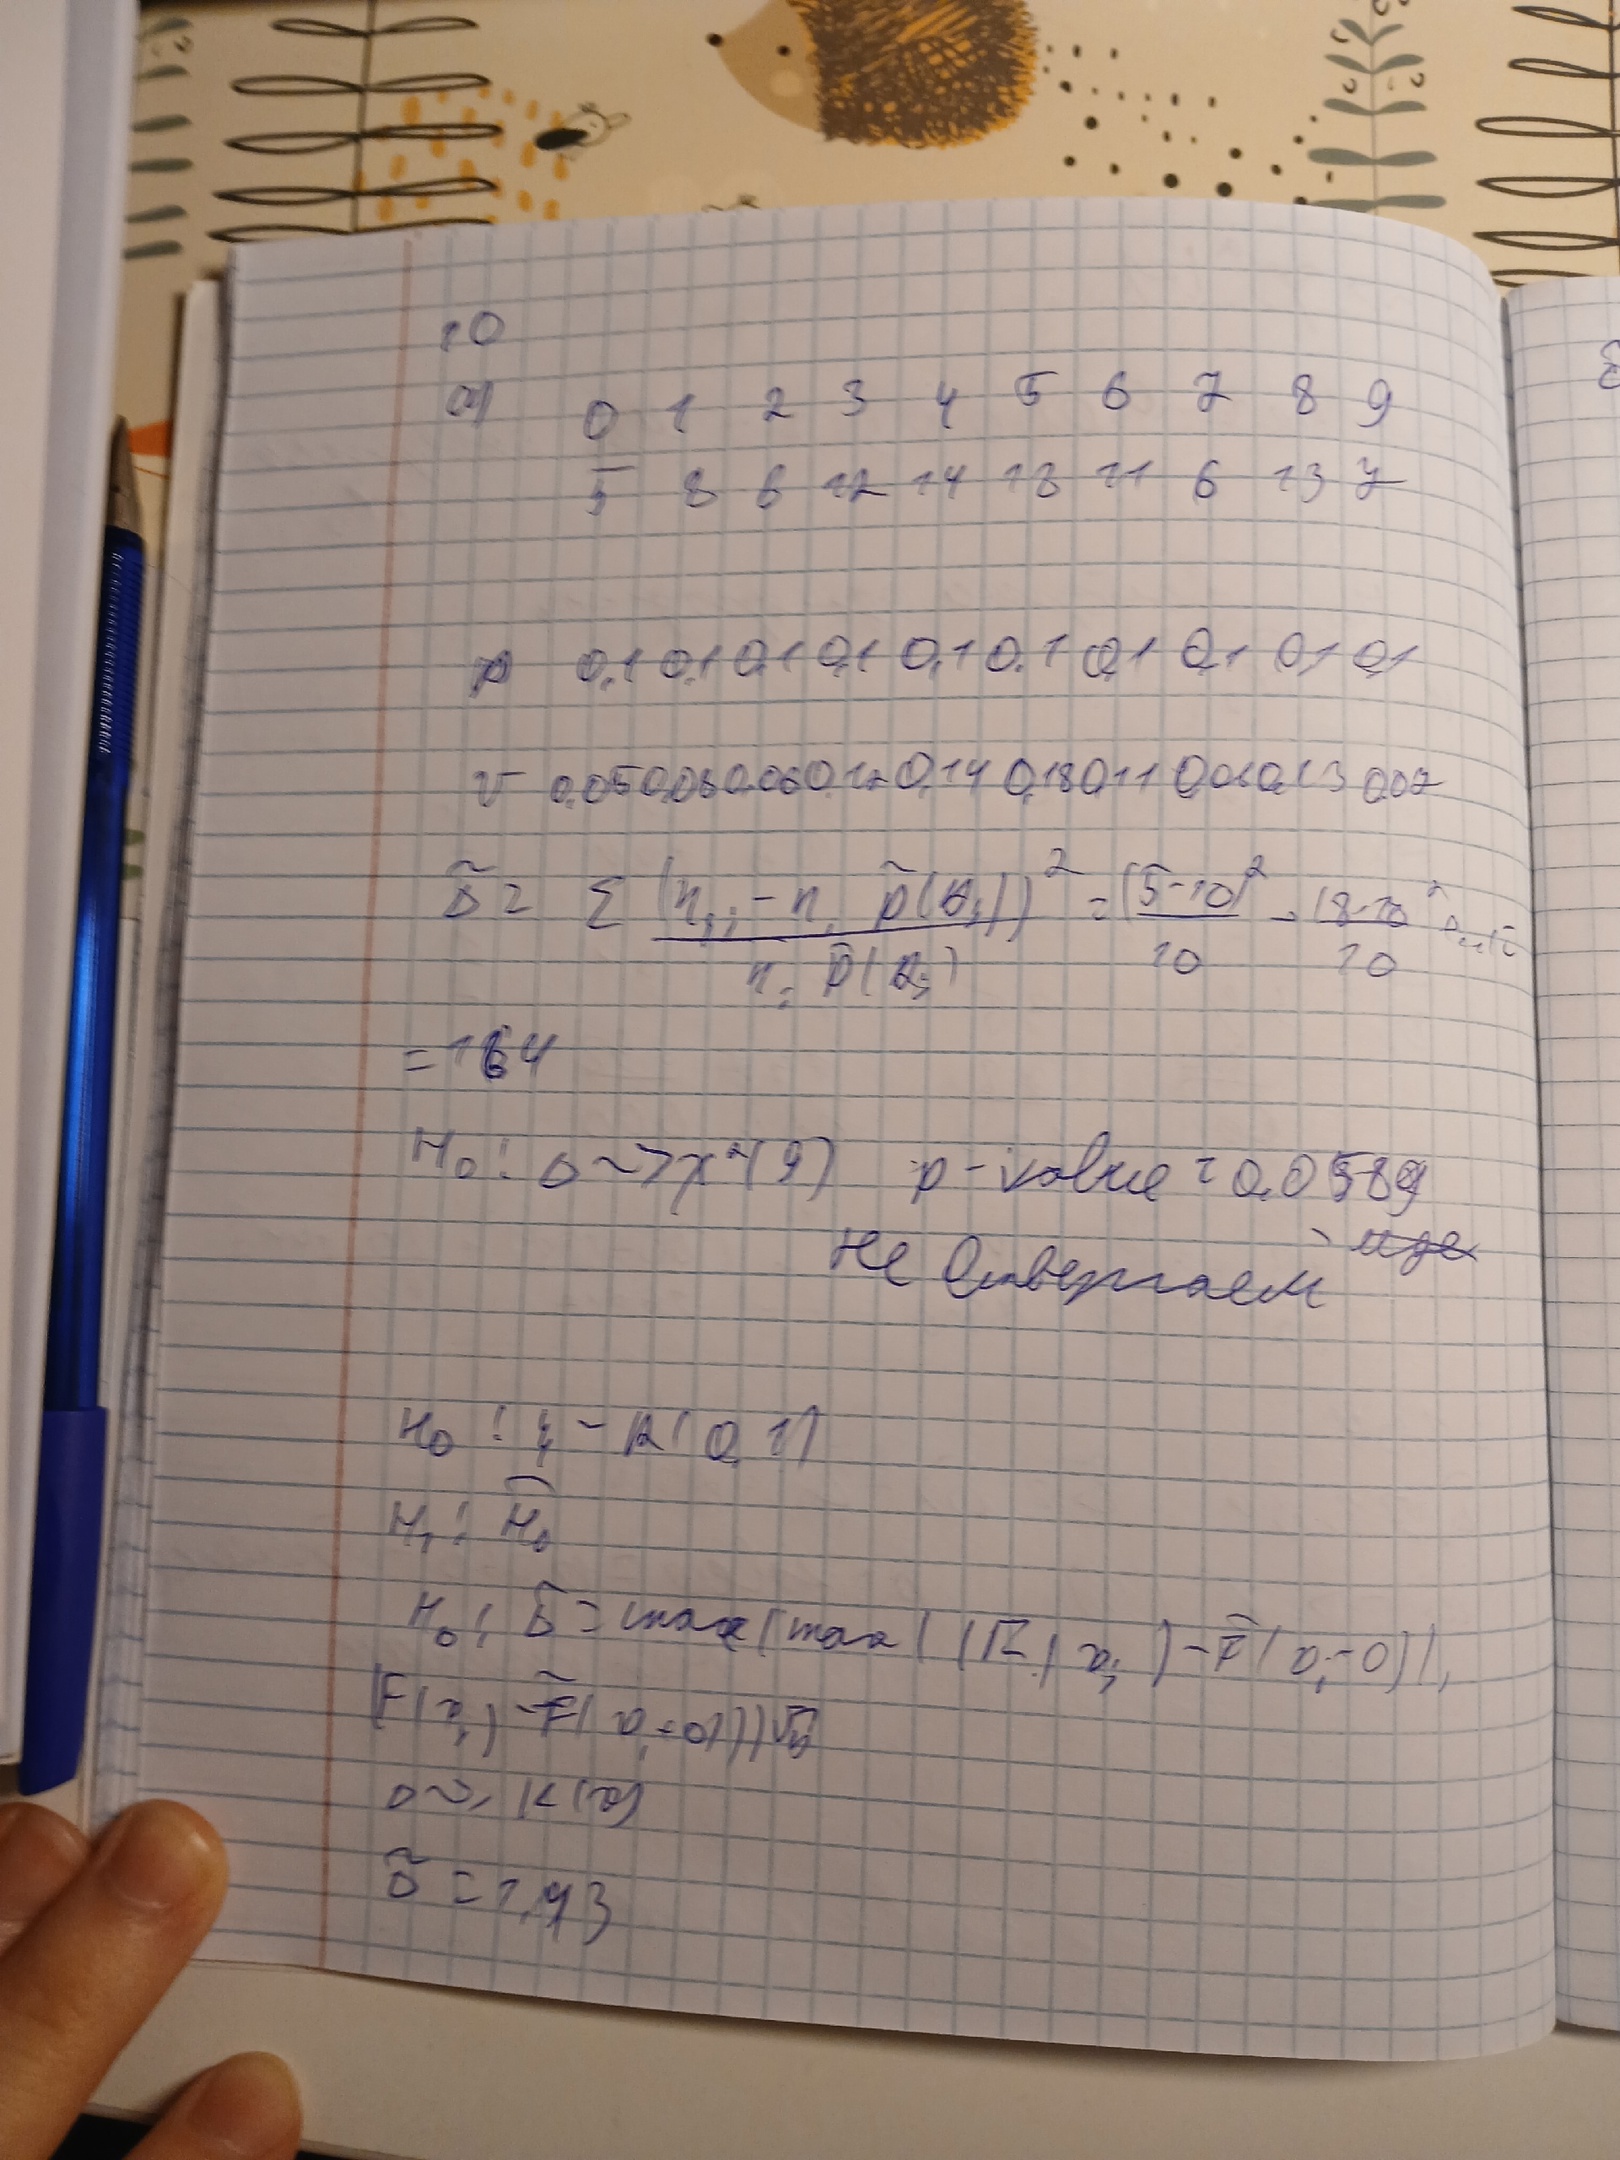 10
a) 0 1 2 3 4 5 6 7 8 9
5 8 6 12 14 18 11 6 13 7
p 0,1 0,1 0,1 0,1 0,1 0,1 0,1 0,1 0,1 0,1
ν 0,05 0,08 0,06 0,12 0,14 0,18 0,11 0,06 0,13 0,07
Δ̃ = Σ (n_j - n p̃(A_j))² / n p̃(A_j) = (5-10)²/10 (8-10)²/10
= 164
H₀: Δ ~> χ²(9) p-value = 0,0589
не отвергаем
H₀: ξ ~ R(0,1)
H₁: H̄₀
H₀: Δ̃ = max(max(|F(a_j) - F̃(a_j-0)|,
|F(a_j) - F̃(a_j+0)|))√n
Δ ~> K(x)
Δ̃ = 1,43